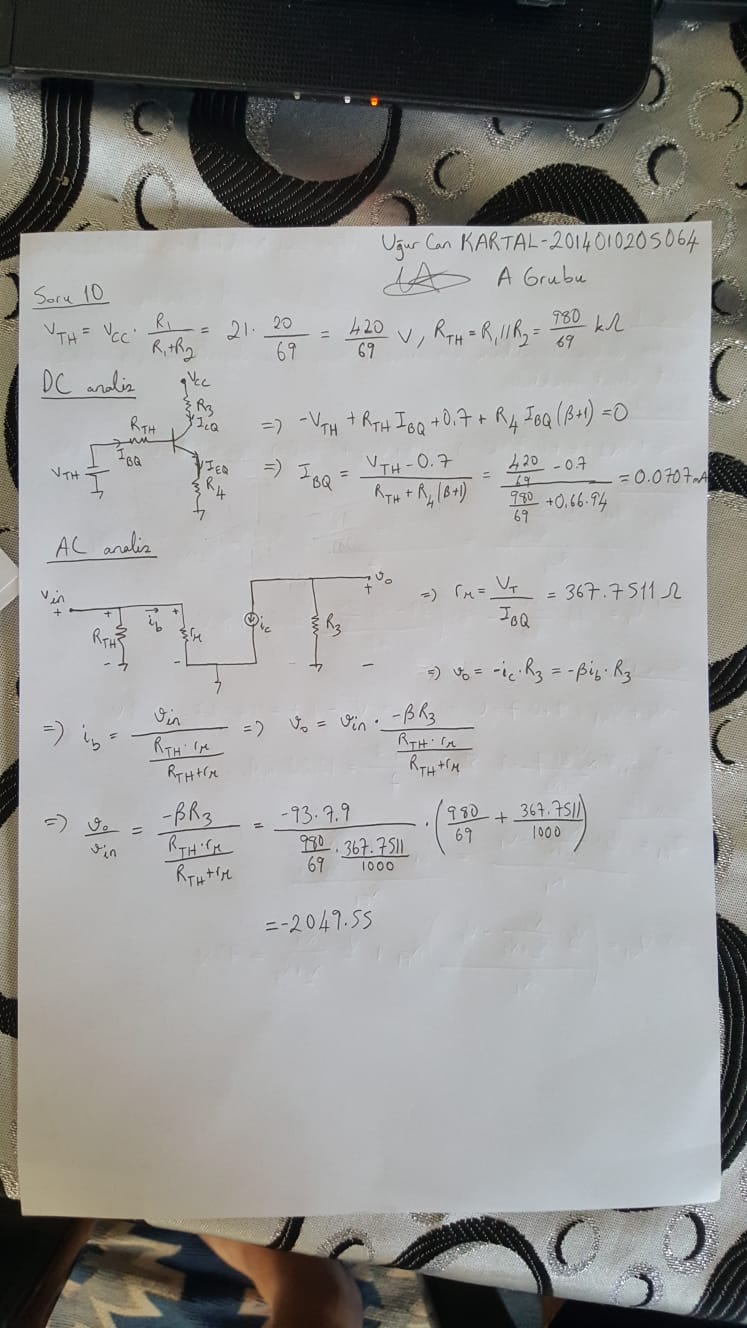 Uğur Can KARTAL-2014010205064
A Grubu
Soru 10
V_TH = V_CC · R_1/(R_1+R_2) = 21 · 20/69 = 420/69 V, R_TH = R_1//R_2 = 980/69 kΩ
DC analiz
V_CC
R_3
I_CQ
R_TH
I_BQ
V_TH
I_EQ
R_4
=> -V_TH + R_TH I_BQ + 0.7 + R_4 I_BQ (β+1) = 0
=> I_BQ = (V_TH - 0.7)/(R_TH + R_4(β+1)) = (420/69 - 0.7)/(980/69 + 0.66.94) = 0.0707mA
AC analiz
V_in
+
R_TH
+
-
i_b
+
r_π
-
i_c
R_3
v_o
+
-
=> r_π = V_T/I_BQ = 367.7511 Ω
=> v_o = -i_c · R_3 = -β i_b · R_3
=> i_b = v_in/((R_TH · r_π)/(R_TH + r_π)) => v_o = v_in · -βR_3/((R_TH · r_π)/(R_TH + r_π))
=> v_o/v_in = -βR_3/((R_TH · r_π)/(R_TH + r_π)) = -93.7.9/(980/69 · 367.7511/1000) · (980/69 + 367.7511/1000)
= -2049.55